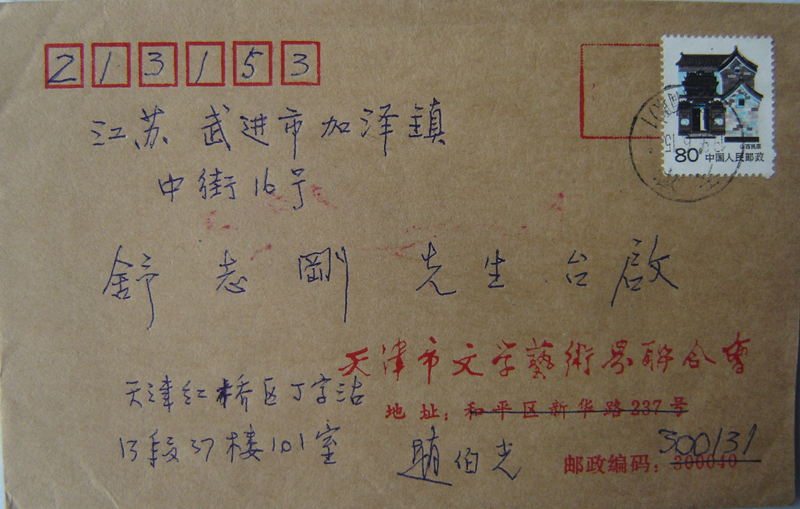 213153
80分 中国人民邮政
江苏 武进市加泽镇
中街16号
舒志剛 先生 台啟
天津市文学藝術界联合會
天津红桥区丁字沽
地址：和平区新华路237号
13段37楼101室
趙伯光
300131
邮政编码：300040